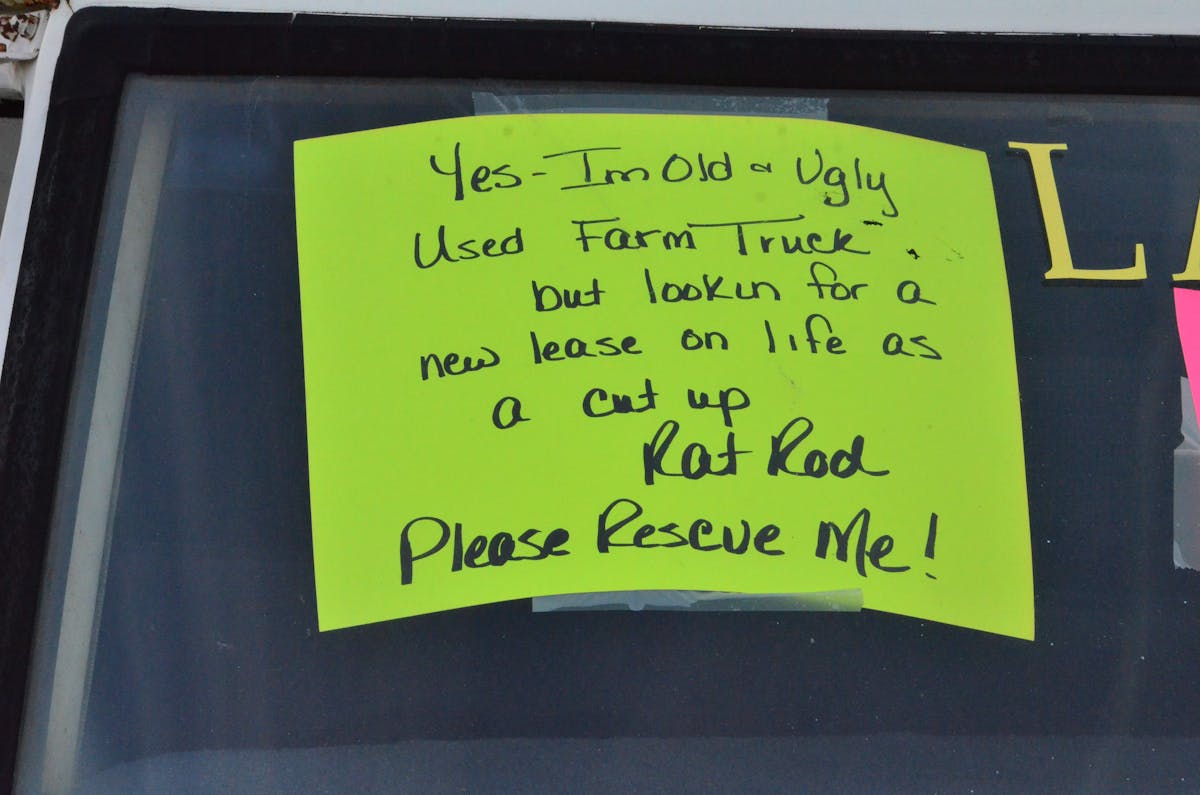 Yes - Im Old & Ugly
Used Farm Truck.
but lookin for a
new lease on life as
a cut up
Rat Rod
Please Rescue Me!
L